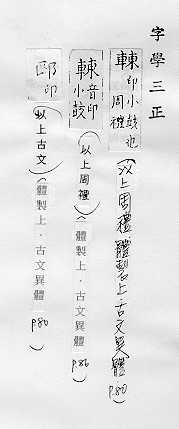 字學三正
印小鼓也
周禮
(以上周禮 體製上.古文異體 P.80)
音印
小鼓
(以上周禮)(體製上.古文異體 P.86)
印
(以上古文)(體製上.古文異體 P.80)